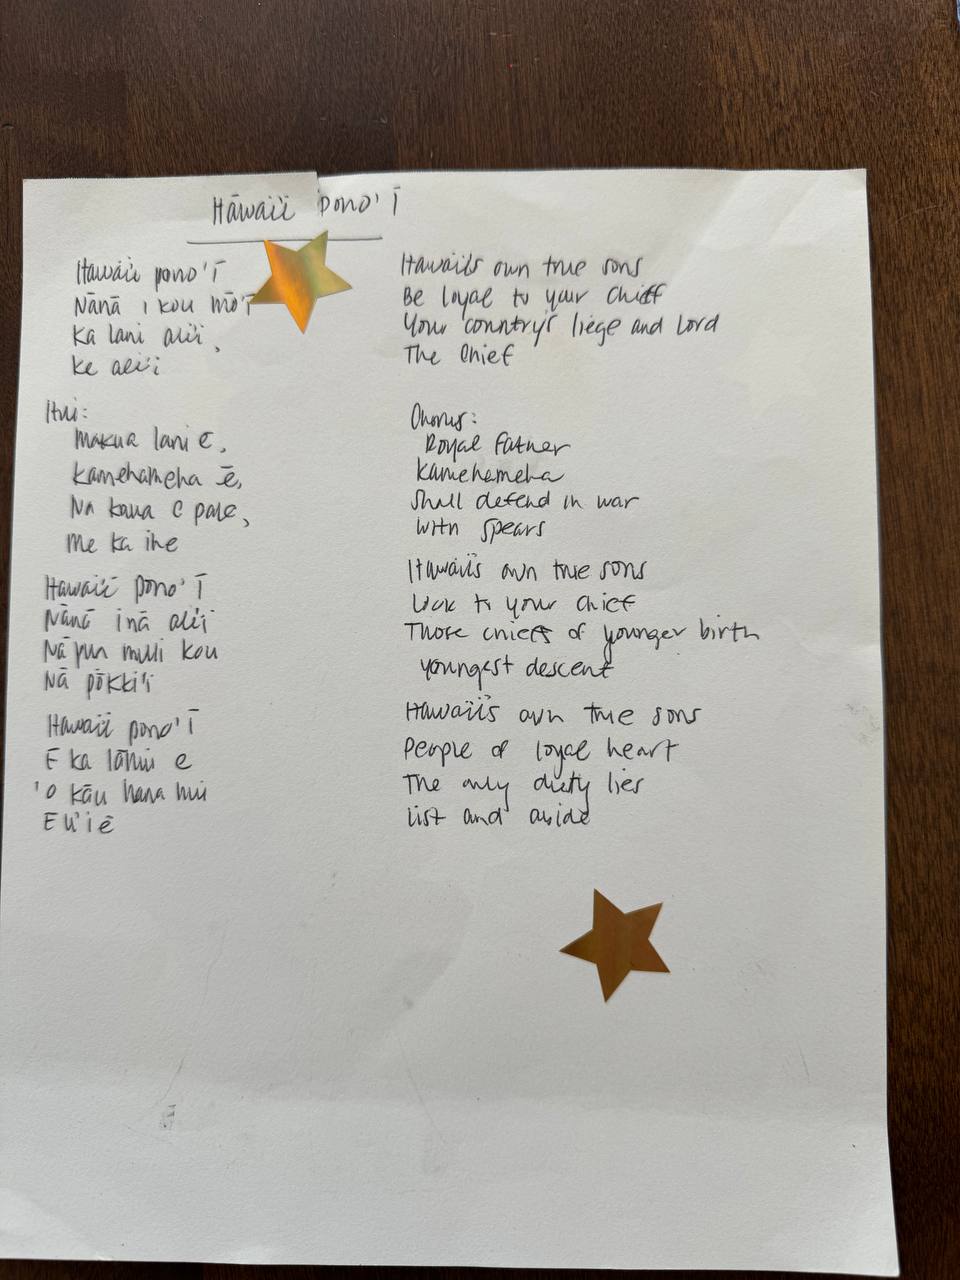 Hāwai'i pono'ī
Hawai'i pono'ī
Nānā i kou mō'ī
Ka lani ali'i,
ke ali'i
Hui:
Makua lani ē,
Kamehameha ē,
Na kaua e pale,
Me ka ihe
Hawai'i pono'ī
Nānā i nā ali'i
Nā pua muli kou
Nā pōkki'i
Hawai'i pono'ī
E ka lāhui e
'O kāu hana nui
E u'i ē
Hawaii's own true sons
Be loyal to your chief
Your country's liege and Lord
The Chief
Chorus:
Royal Father
Kamehameha
Shall defend in war
With spears
Hawaii's own true sons
Look to your chief
Those chiefs of younger birth
youngest descent
Hawaii's own true sons
People of loyal heart
The only duty lies
List and abide